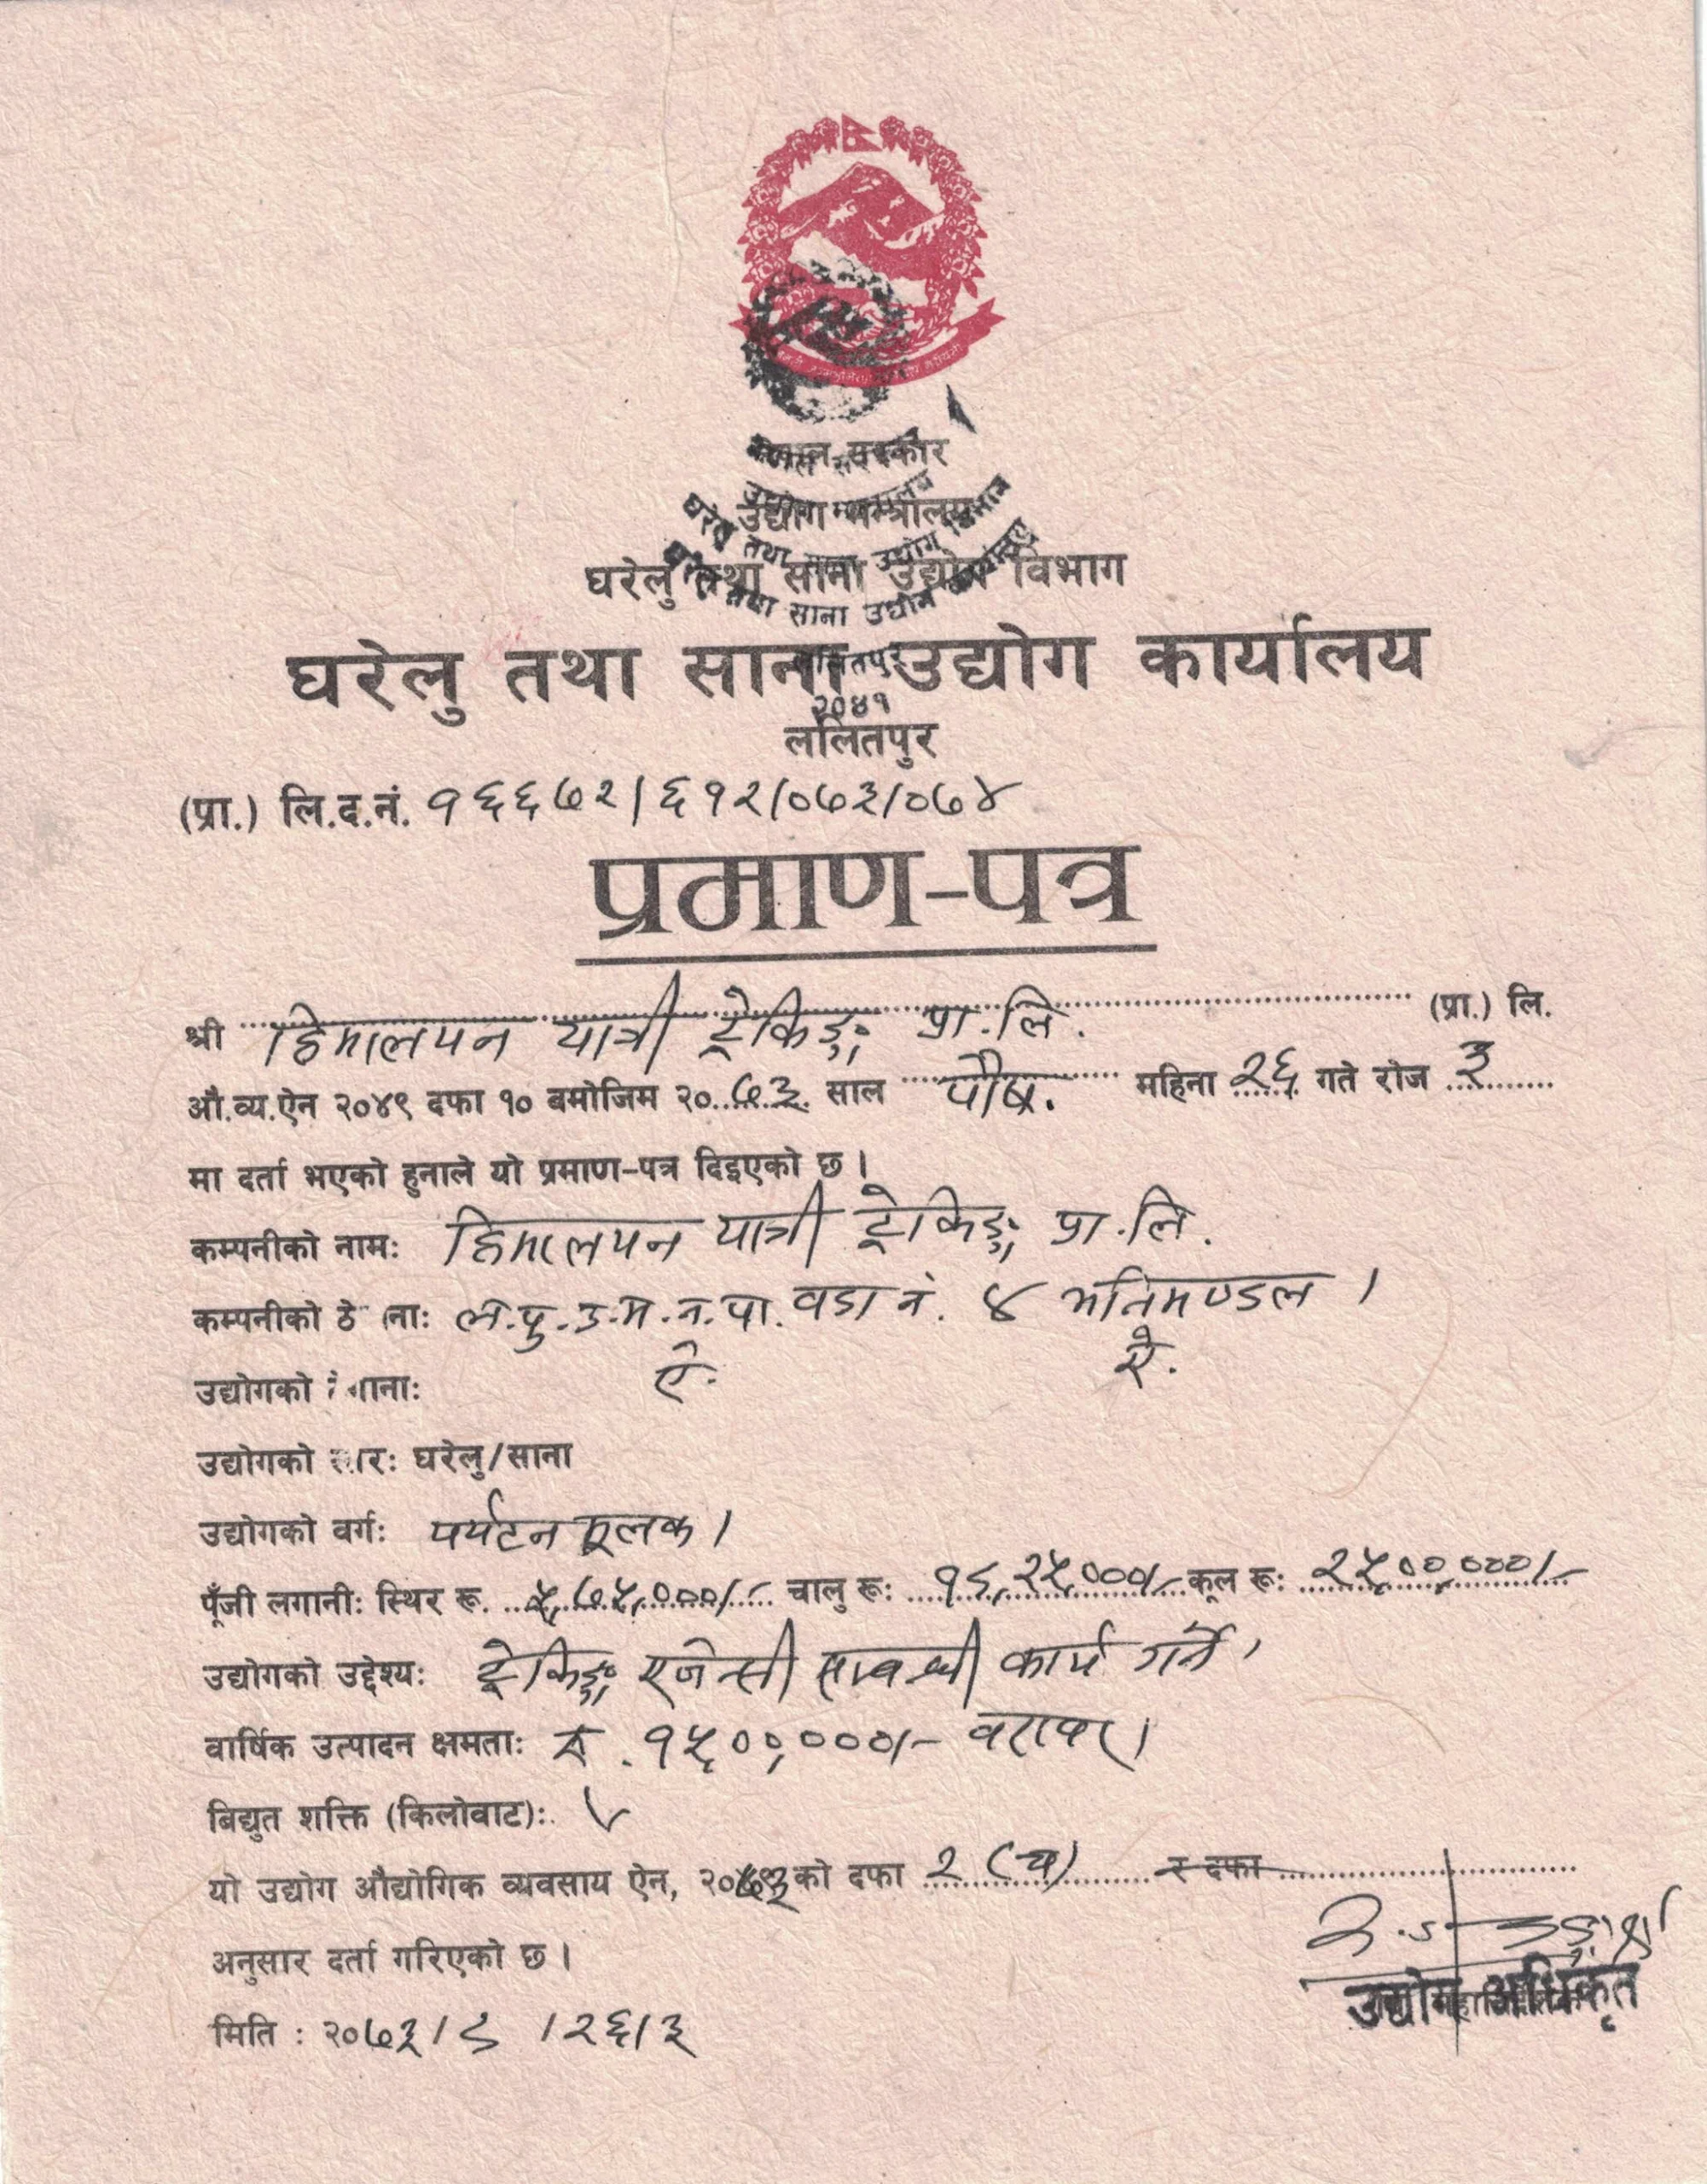 नेपाल सरकार
उद्योग मन्त्रालय
घरेलु तथा साना उद्योग विभाग
घरेलु तथा साना उद्योग कार्यालय
२०४१
ललितपुर
(प्रा.) लि.द.नं. १६६७२/६१२/०७३/०७४
प्रमाण-पत्र
श्री हिमालयन यात्री ट्रेकिङ्ग प्रा.लि. (प्रा.) लि.
औ.व्य.ऐन २०४९ दफा १० बमोजिम २०७३ साल पौष. महिना २६ गते रोज ३
मा दर्ता भएको हुनाले यो प्रमाण-पत्र दिइएको छ ।
कम्पनीको नामः हिमालयन यात्री ट्रेकिङ्ग प्रा.लि.
कम्पनीको ठे नाः ल.पु.उ.म.न.पा. वडा नं. ४ ।
उद्योगको गानाः ऐ. ऐ.
उद्योगको स्तरः घरेलु/साना
उद्योगको वर्गः पर्यटन मूलक ।
पूँजी लगानीः स्थिर रू. ५,७५,०००/- चालु रूः १९,२५,०००/- कूल रूः २५,००,०००/-
उद्योगको उद्देश्यः ट्रेकिङ्ग एजेन्सी सम्बन्धी कार्य गर्ने ।
वार्षिक उत्पादन क्षमताः रु. १५,००,०००/- बराबर ।
बिद्युत शक्ति (किलोवाट):
यो उद्योग औद्योगिक व्यवसाय ऐन, २०७३ को दफा २ (च) र दफा
अनुसार दर्ता गरिएको छ ।
उद्योग अधिकृत
मिति : २०७३/९/२६/३